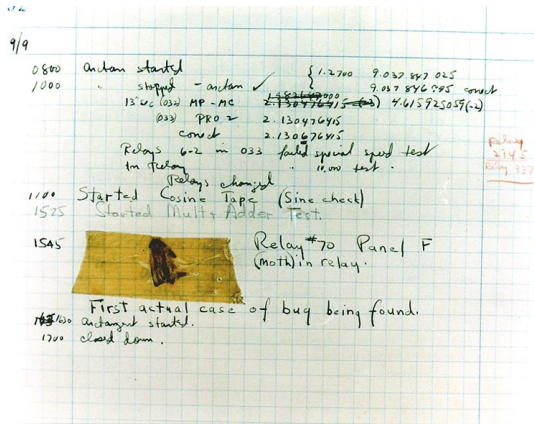 9/9
0800 arctan started { 1.2700 9.037 847 025
1000 " stopped - arctan ✓ 9.037 846 995 correct
13"uc (032) MP-MC 2.130476415 4.615925059(-2)
(033) PRO 2 2.130476415
correct 2.130676415
Relays 6-2 in 033 failed special speed test
In Relay " 10,000 test.
Relay
2145
Relay 337
Relays changed
1100 Started Cosine Tape (Sine check)
1525 Started Mult+Adder Test.
1545 Relay #70 Panel F
(moth) in relay.
First actual case of bug being found.
1630 arctangent started.
1700 closed down.